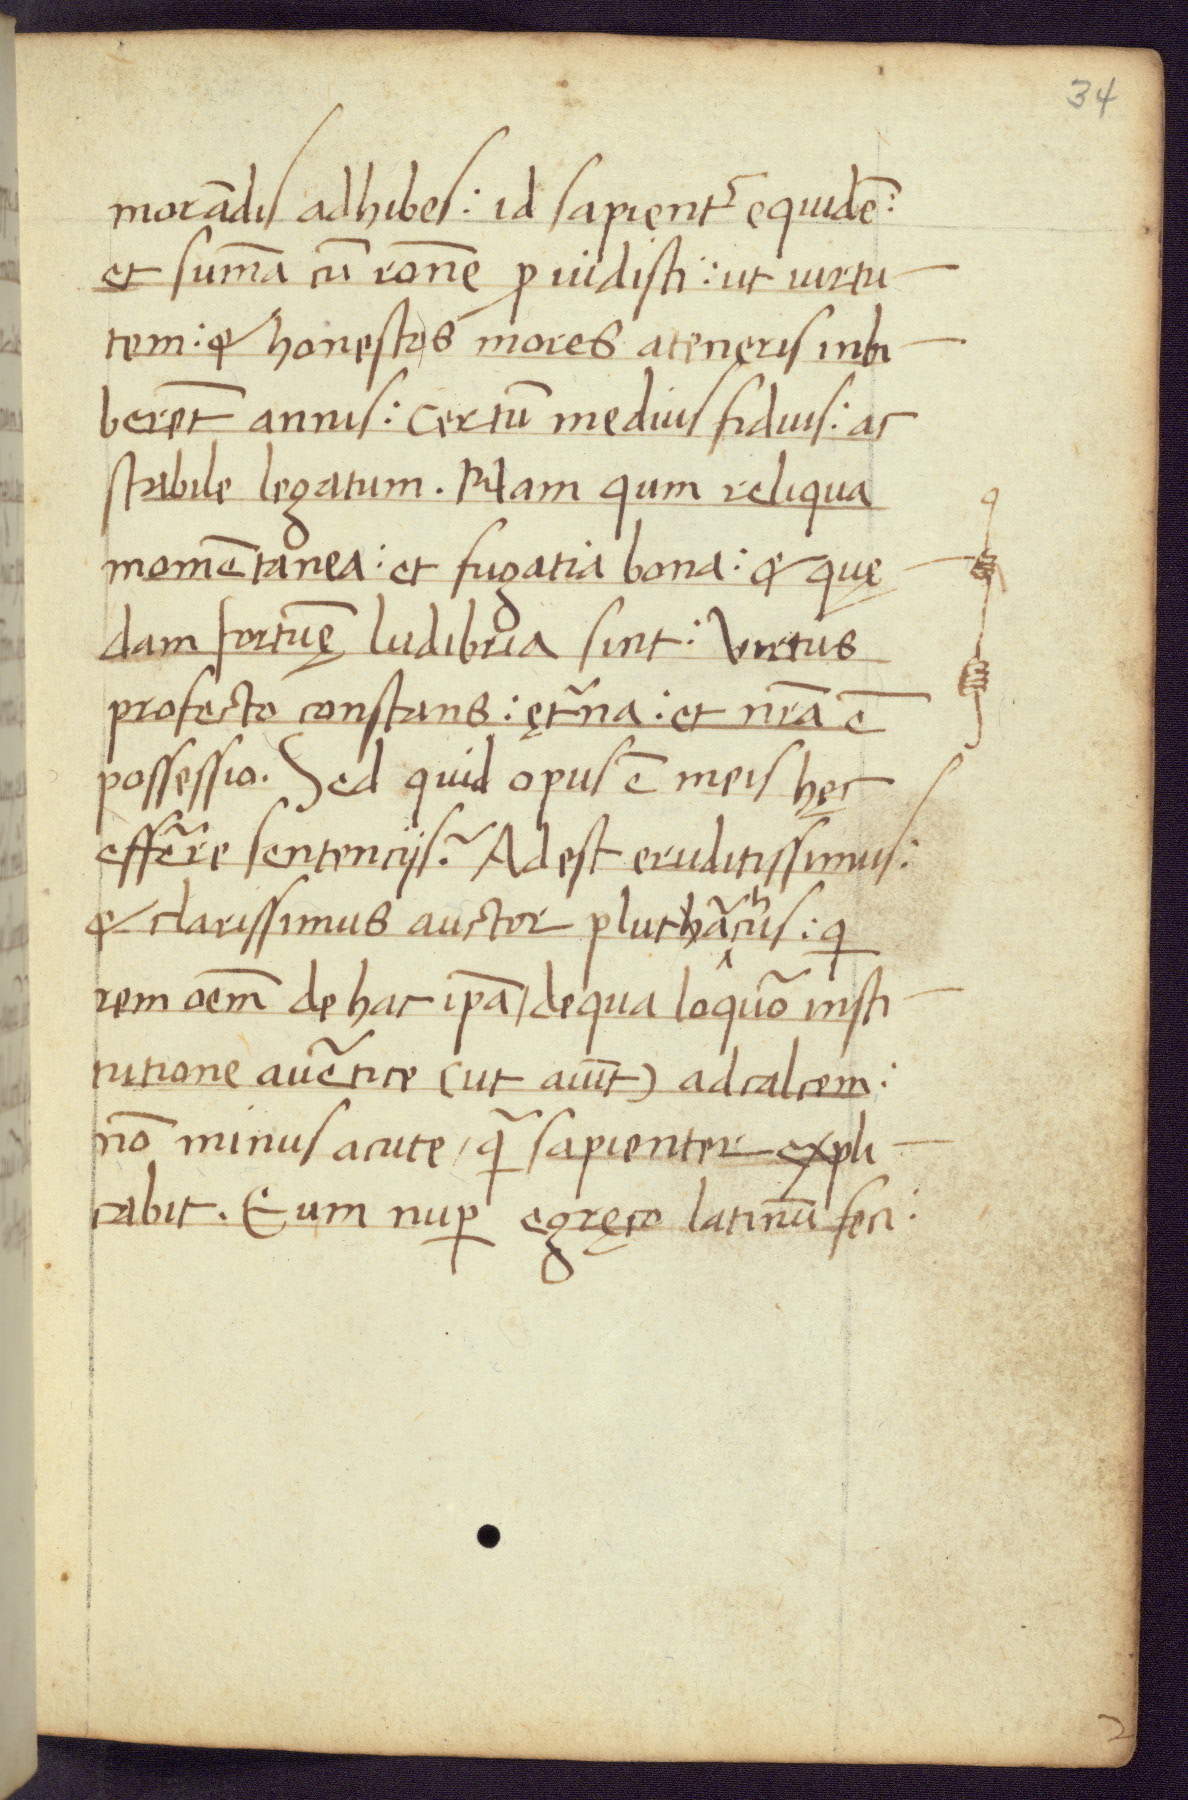 34
morādis adhibes: id sapient᷑ equidē:
et sumā cū ronē ꝓ uidisti: ut uirtu-
tem: & honestos mores a teneris inbi-
berēt annis: Certū medius fidius: ac
stabile legatum. Nam qum reliqua
momētanea: et fugatia bona: & quę-
dam fortūę ludibria sint: Virtus
profecto constans: ęt̃na: et nr̄a ē
possessio. Sed quid opus ē meis hęc
effẽre sentencijs? Adest eruditissimus:
& clarissimus auctor plutħãchus: qi
rem oēm de hac ip̄a / de qua loquõ insti-
tutione auētice (ut aiūt) ad calcem:
nō minus acute / q̃ sapienter expli-
cabit. Eum nuꝑ e gręco latinū feci:
2